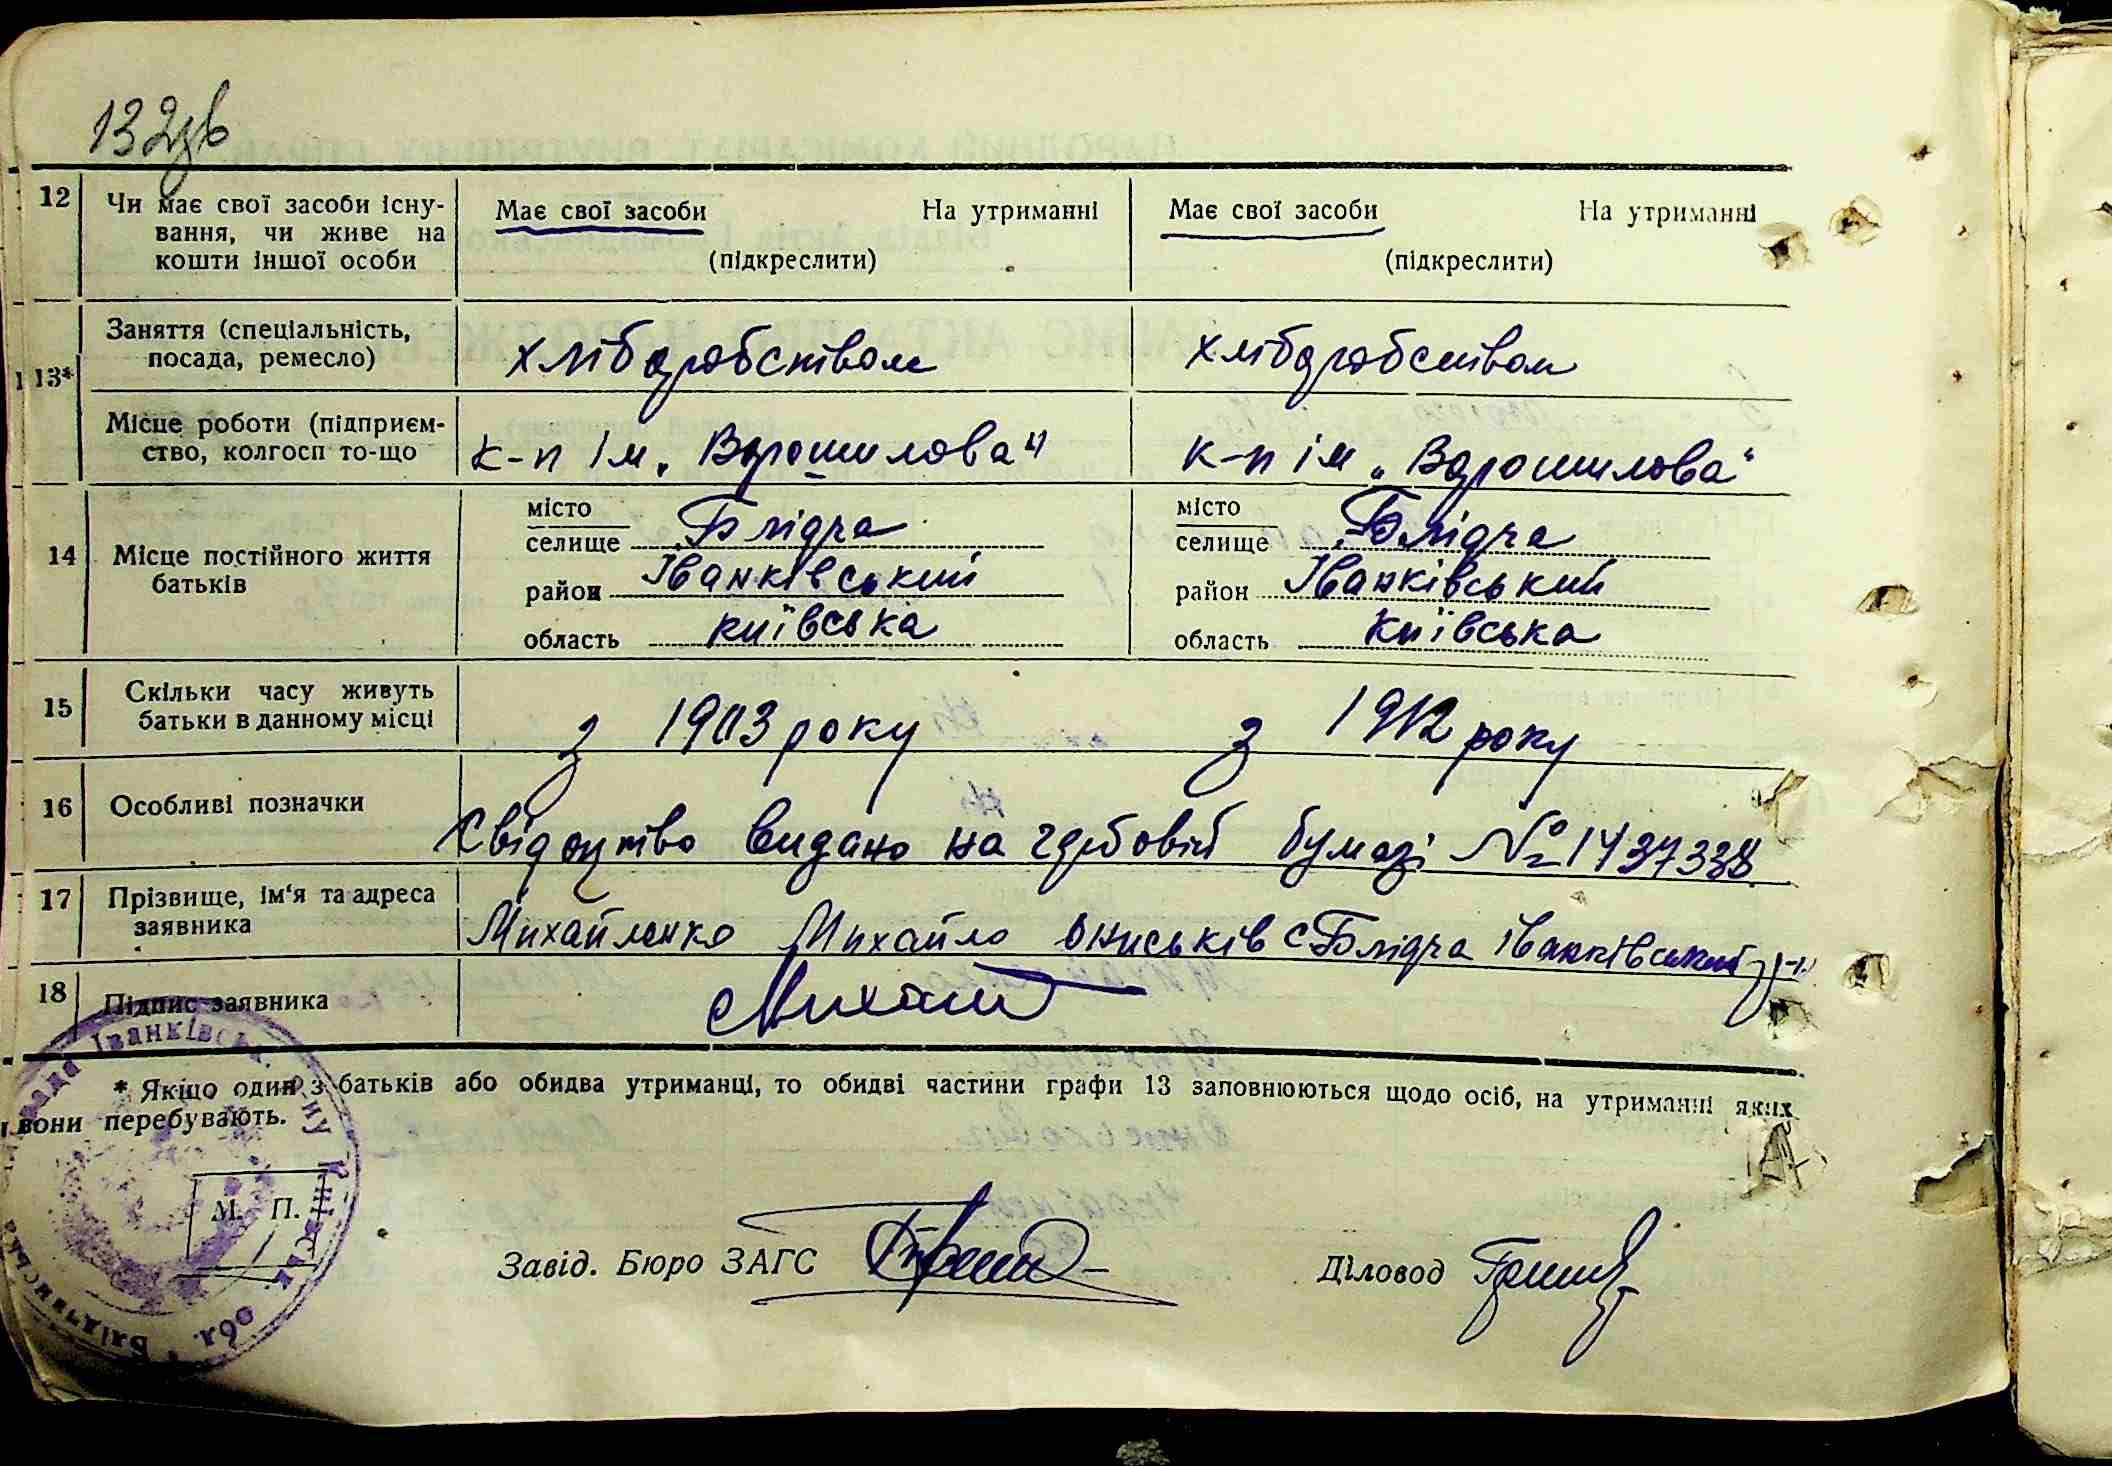 132зв
12 Чи має свої засоби існу- Має свої засоби На утриманні Має свої засоби На утриманні
вання, чи живе на
кошти іншої особи (підкреслити) (підкреслити)
13* Заняття (спеціальність, хліборобством хліборобством
посада, ремесло)
Місце роботи (підприєм- к-п ім. „Ворошилова" к-п ім „Ворошилова"
ство, колгосп то-що
14 Місце постійного життя місто місто
батьків селище Блідча селище Блідча
район Іванківський район Іванківський
область київська область Київська
15 Скільки часу живуть з 1903 року з 1912 року
батьки в данному місці
16 Особливі позначки Свідоцтво видано на гербовій бумазі № 1437338
17 Прізвище, ім'я та адреса Михайленко МихайлоОниськів с Блідча іванківський р-н
заявника
18 Підпис заявника
* Якщо один з батьків або обидва утриманці, то обидві частини графи 13 заповнюються щодо осіб, на утриманні яких
вони перебувають.
М. П.
Завід. Бюро ЗАГС Діловод